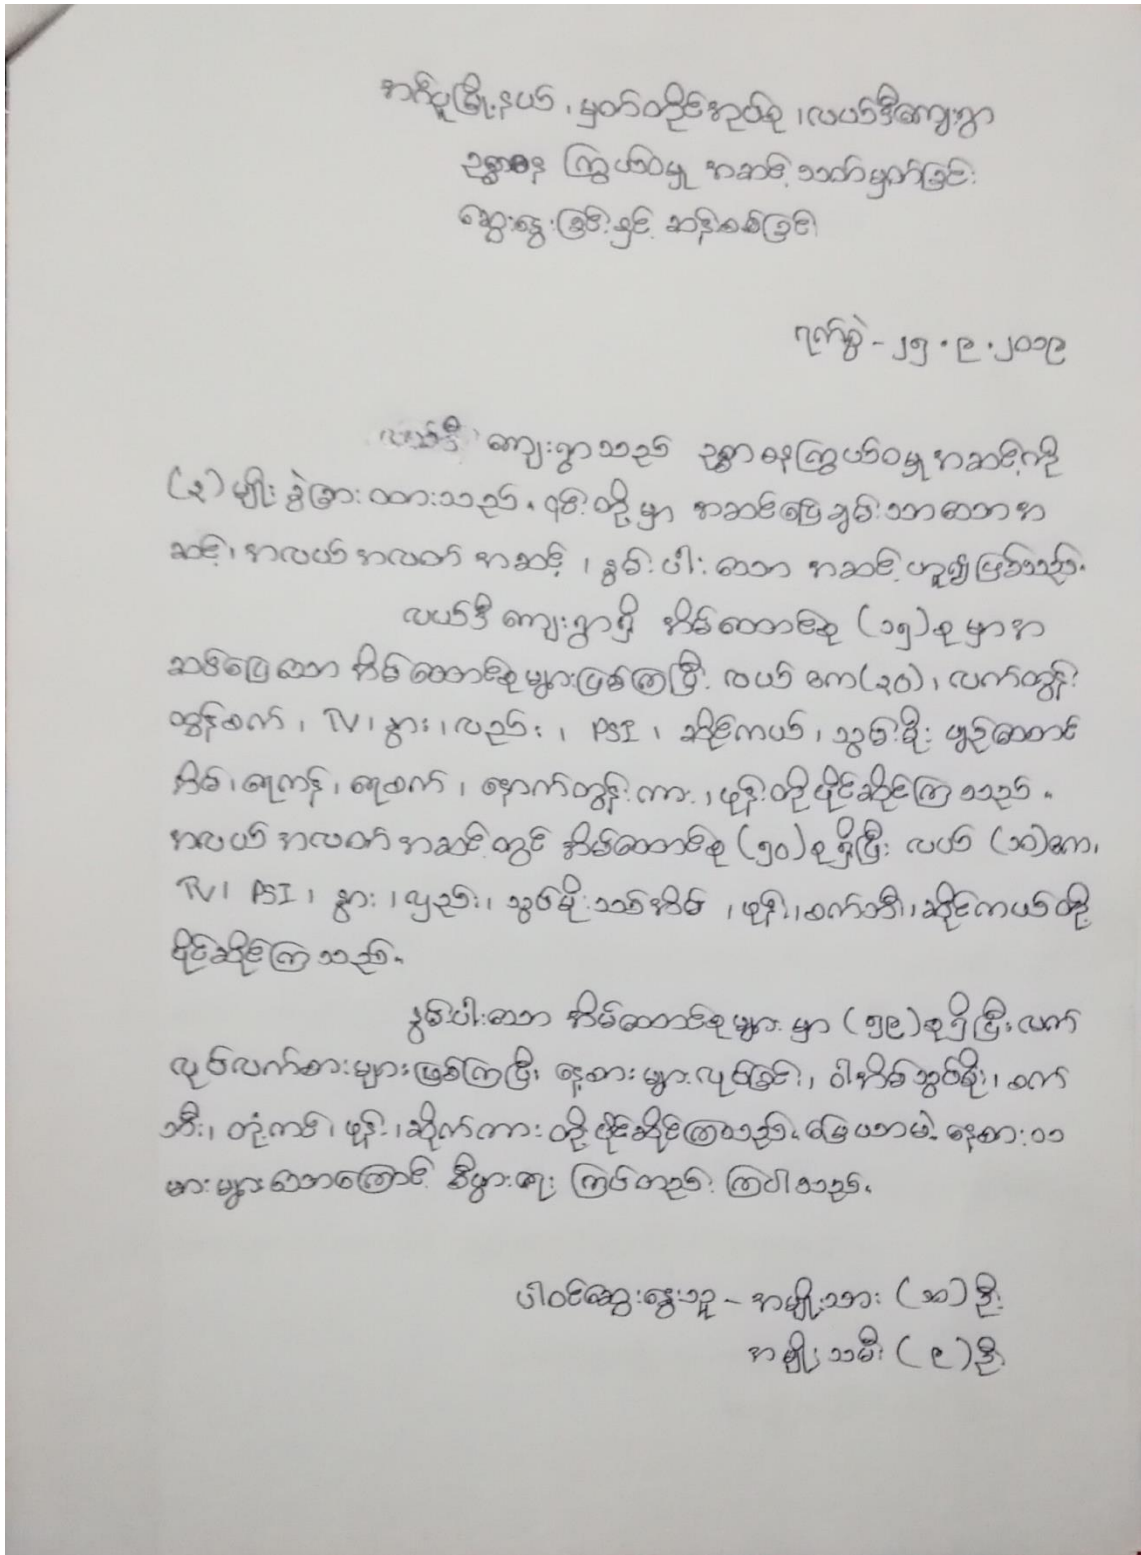 အင်္ဂပူမြို့နယ် ၊ မှတ်တိုင်အုပ်စု ၊ လယ်ဒီကျေးရွာ
ဥစ္စာဓန ကြွယ်ဝမှု အဆင့် သတ်မှတ်ခြင်း
ဆွေးနွေးခြင်းနှင့် ဆန်းစစ်ခြင်း
ရက်စွဲ - ၂၅.၉.၂၀၁၉
လယ်ဒီ ကျေးရွာသည် ဥစ္စာဓနကြွယ်ဝမှုအဆင့်ကို
(၃) မျိုး ခွဲခြားထားသည်။ ၎င်းတို့မှာ အဆင်ပြေချမ်းသာသောအ
ဆင့်၊ အလယ်အလတ် အဆင့် ၊ နွမ်းပါးသော အဆင့်ဟူ၍ဖြစ်သည်။
လယ်ဒီ ကျေးရွာရှိ အိမ်ထောင်စု (၁၅)စု မှာအ
ဆင်ပြေသော အိမ်ထောင်စုများဖြစ်ကြပြီး လယ် ဧက(၃၀)၊ လက်တွန်း
ထွန်စက် ၊ TV၊ နွား ၊ လှည်း ၊ PSI ၊ ဆိုင်ကယ် ၊ သွပ်မိုး ပျဉ်ထောင်
အိမ် ၊ ရေကန် ၊ ရေစက် ၊ နောက်တွန်းကား ၊ ဖုန်းတို့ပိုင်ဆိုင်ကြသည်။
အလယ်အလတ်အဆင့်တွင် အိမ်ထောင်စု (၅၀)စုရှိပြီး လယ် (၁၀)ဧက၊
TV၊ PSI ၊ နွား ၊ လှည်း၊ သွပ်မိုးသစ်အိမ် ၊ ဖုန်း၊ စက်ဘီး၊ ဆိုင်ကယ်တို့
ပိုင်ဆိုင်ကြသည်။
နွမ်းပါးသော အိမ်ထောင်စုများမှာ (၅၉)စုရှိပြီး လက်
လုပ်လက်စားများဖြစ်ကြပြီး နေ့စားများလုပ်ခြင်း၊ ဝါးအိမ်သွပ်မိုး၊ စက်
ဘီး၊ တုံးကင် ၊ ဖုန်း ၊ ဆိုက်ကား တို့ပိုင်ဆိုင်ကြသည်။ မြေယာမဲ့ နေ့စားသ
မားများသောကြောင့် စီးပွားရေး ကြပ်တည်းကြပါသည်။
ပါဝင်ဆွေးနွေးသူ - အမျိုးသား (၁၈)ဦး
အမျိုးသမီး (၉)ဦး